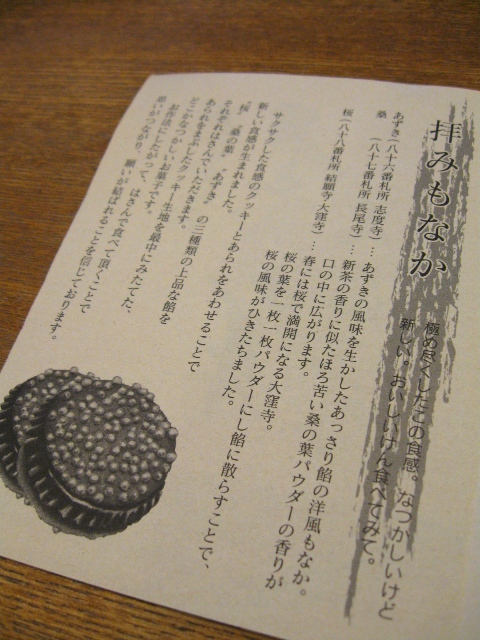 拝みもなか
極め尽くしたこの食感。なつかしいけど
新しい。おいしいけん食べてみて。
あずき(八十六番札所 志度寺)…あずきの風味を生かしたあっさり餡の洋風もなか。
桑 (八十七番札所 長尾寺)…新茶の香りに似たほろ苦い桑の葉パウダーの香りが
口の中に広がります。
桜(八十八番札所 結願寺大窪寺)…春には桜で満開になる大窪寺。
桜の葉を一枚一枚パウダーにし餡に散らすことで、
桜の風味がひきたちました。
サクサクした食感のクッキーとあられをあわせることで
新しい食感が生まれました。
“桜” “桑の葉” “あずき” の三種類の上品な餡を
それぞれはさんでいただきます。
あられをまぶしたクッキー生地を最中にみたてた、
どこかなつかしいお菓子です。
お作法にしたがって、はさんで食べて頂くことで
思いがつながり、願いが結ばれることを信じております。